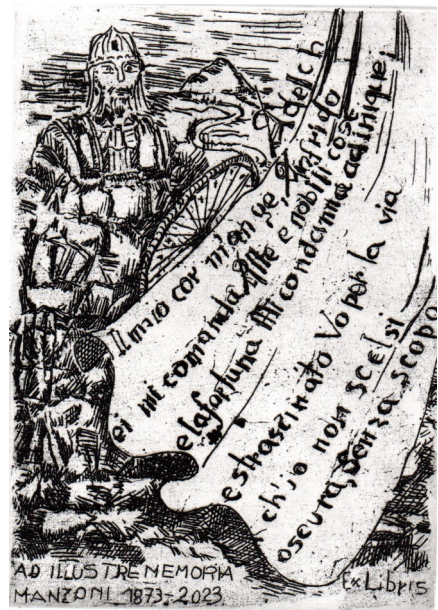 Adelch
Il mio cor m'ange, Anfrido
ei mi comanda Alte e nobili cose
e la fortuna Mi condanna ad inique;
e strascinato Vo per la via
ch'io non scelsi
oscura, senza scopo
AD ILLUSTRE MEMORIA
MANZONI 1873-2023
Ex Libris